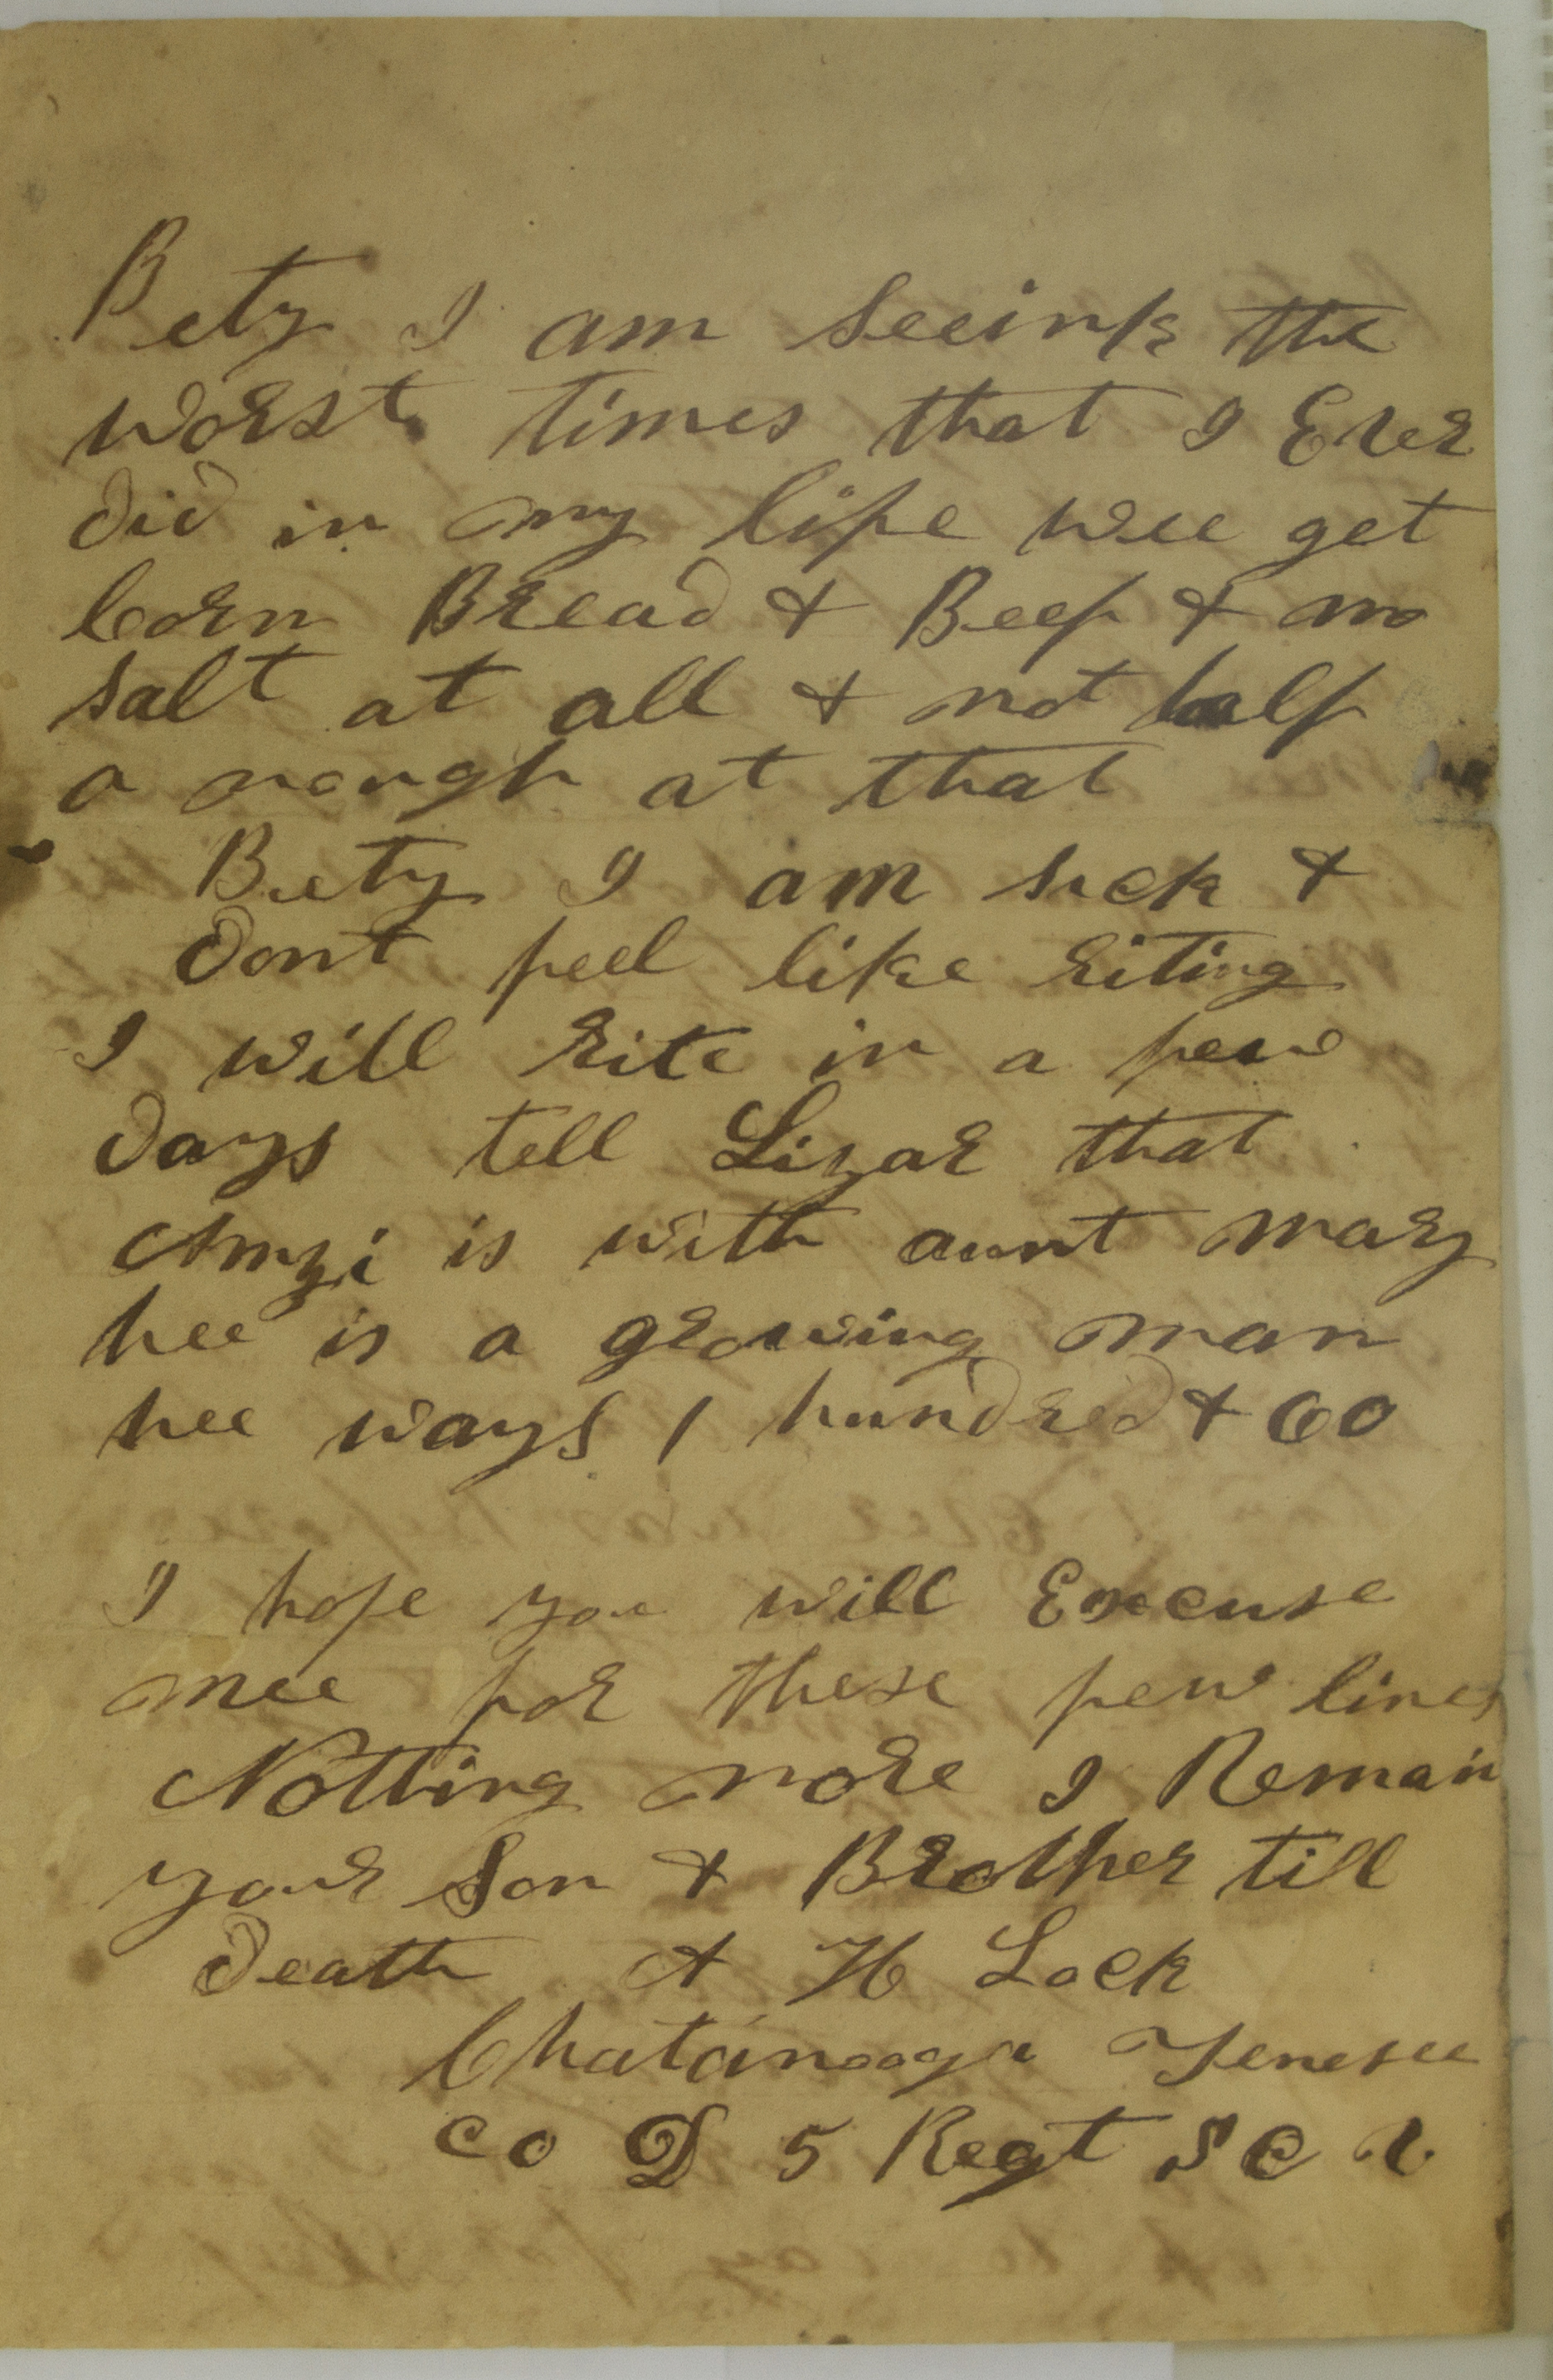 Bety I am seeink the
worst times that I Ever
did in my life wee get
Corn Bread & Beef & no
salt at all & not half
a nough at that
Bety I am sick &
dont feel like riting
I will rite in a few
days tell Lizar that
Amzi is with aunt mary
hee is a growing man
hee ways 1 hundred & 60
I hope you will Excuse
mee for these few lines
Nothing more I Remain
your Son & Brother till
Death A H Lock
Chatanooga Tenesee
Co D 5 Regt S C V